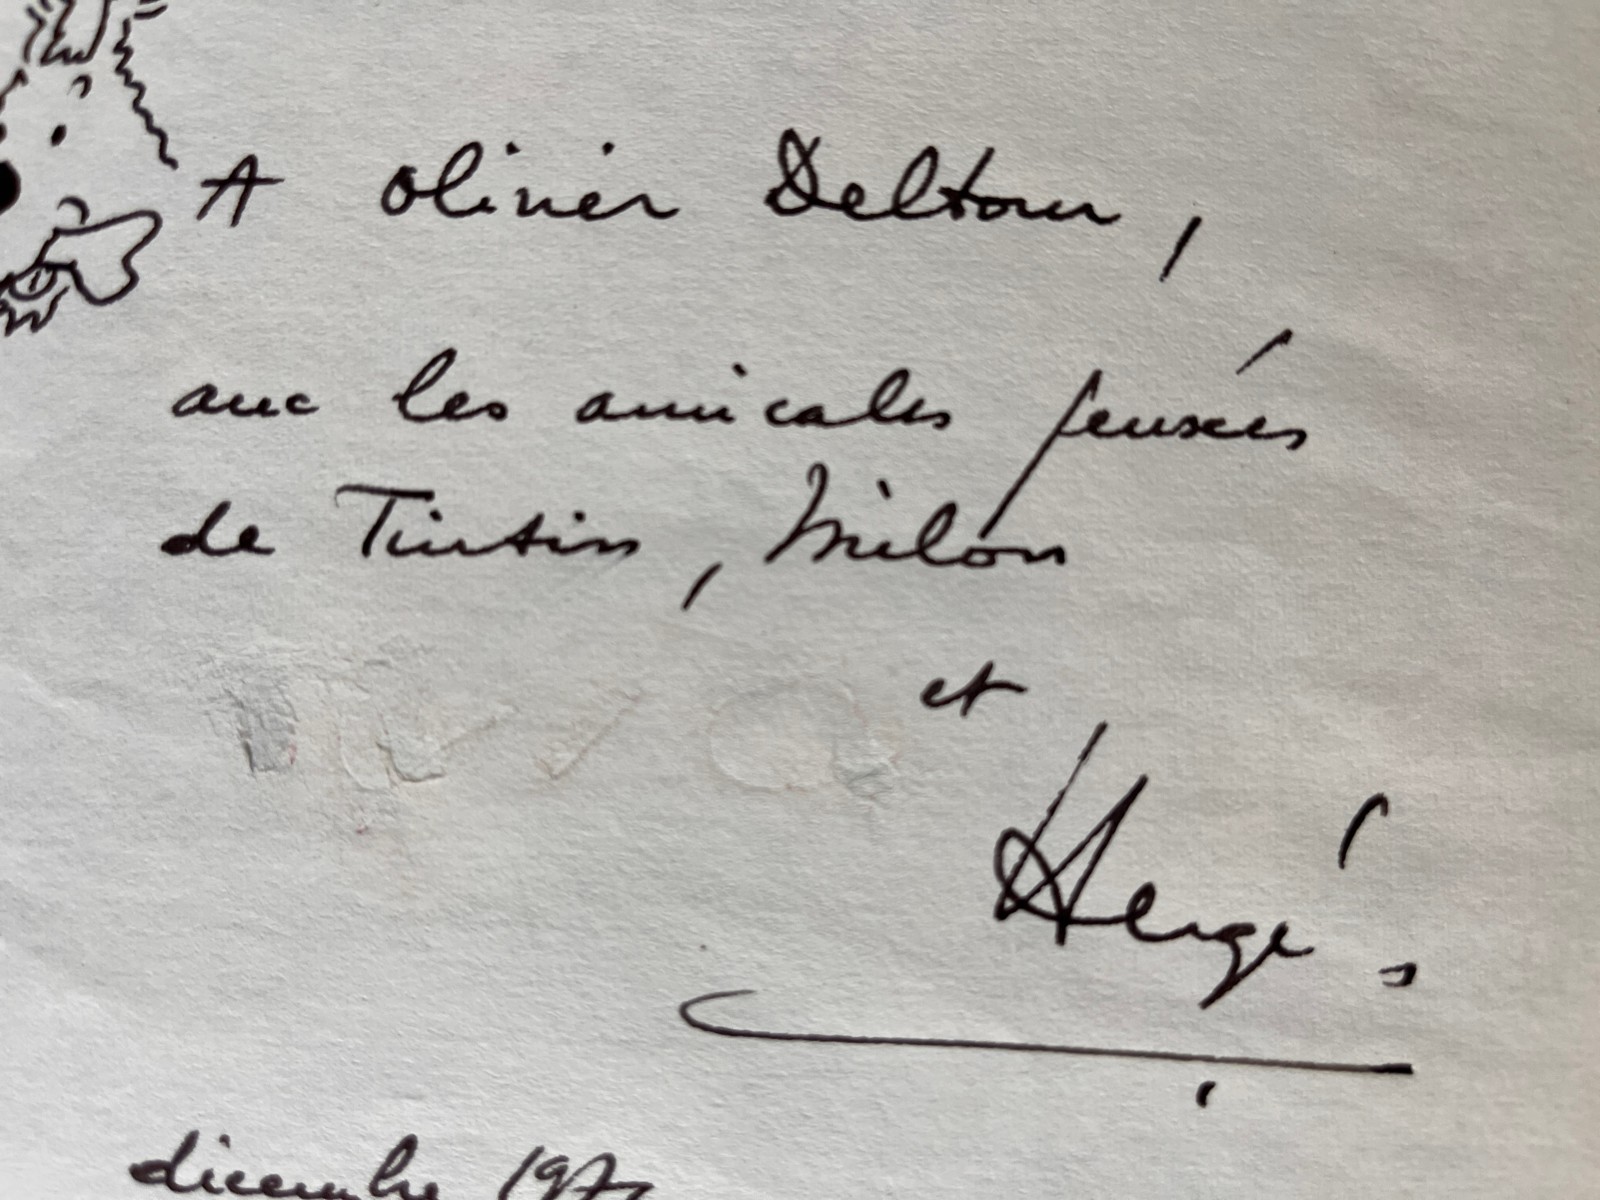 A Olivier Deltour,
avec les amicales pensées
de Tintin, Milou
et
Hergé
décembre